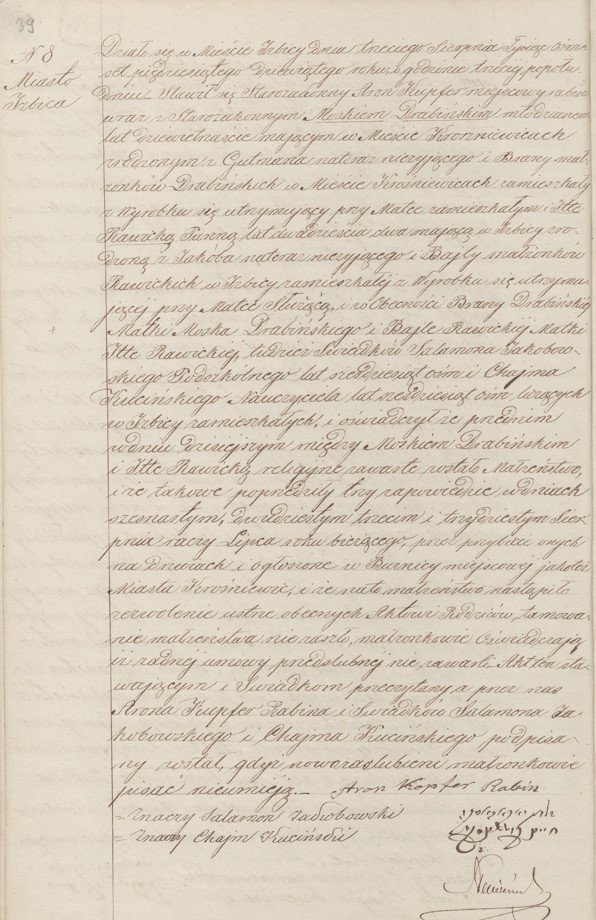 39
N 8
Miasto
Izbica
Działo się w Mieście Izbicy dnia trzeciego Sierpnia Tysiąc ośm-
set pięćdziesiątego dziewiątego roku, o godzinie trzeciej popołu-
dniu. Stawił się Starozakonny Aron Kupfer miejscowy rabin
wraz z Starozakonnym Moskiem Drabińskim młodzianem
lat dziewietnaście mającym w Mieście Krośniewicach
zrodzonym z Gutmana nateraz nieżyjącego i Brany mał-
żonków Drabińskich w Mieście Krośniewicach zamieszkały
z Wyrobku się utrzymujący przy Matce zamieszkałym i Itte
Rawicką Panną lat dwadzieścia dwa mającą w Izbicy zro-
dzoną z Jakóba nateraz nieżyjącego i Bajly małżonków
Rawickich w Izbicy zamieszkałej z Wyrobku się utrzymu-
jącej przy Matce Służącą, i w Obecności Brany Drabińskiej
Matki Moska Drabińskiego i Bajle Rawickiej Matki
Itte Rawickiej, tudzież Świadków Salamona Jakobow-
skiego Podszkólnego lat sześdziesiąt ośm i Chajma
Kucińskiego Nauczyciela lat sześdziesiąt ośm liczących
w Izbicy zamieszkałych, i oświadczył że przednim
w dniu dzisiejszym między Moskiem Drabińskim
i Itte Rawicką religijne zawarte zostało Małżeństwo,
i że takowe poprzedziły trzy zapowiedzie w dniach
szesnastym, dwudziestym trzecim i trzydziestym Sier-
pnia raczy Lipca roku bieżącego, przez przybicie onych
na Drzwiach i ogłoszone w Bużnicy miejscowej jakoteż
Miasta Krośniewic, i że na to małżeństwo nastąpiło
zezwolenie ustne obecnych Aktowi Rodziców, tamowa-
nie małżeństwa nie zaszło, małżonkowie Oświadczają
iż żadnej umowy przedślubnej nie zawarli. Akt ten sta-
wającym i Świadkom przeczytany, a przez nas
Arona Kupfer Rabina i Świadków Salamona Ja-
kobowskiego i Chajma Kucińskiego podpisa-
ny został, gdyż nowozaślubieni małżonkowie
pisać nieumieją.- Aron Kopfer Rabin
= Znaczy Salamon Jadkobowski
= Znaczy Chajm Kuciński
חיים